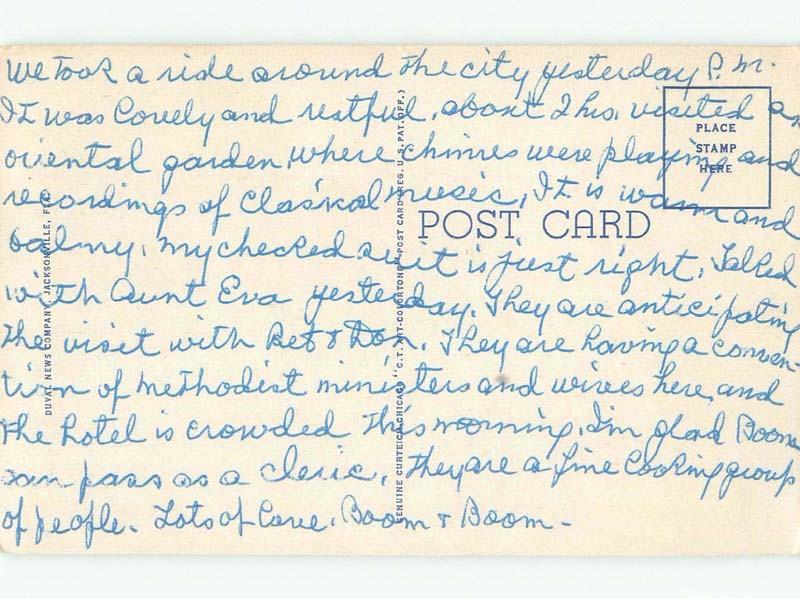 We took a ride around the city yesterday P.M.
It was lovely and restful, about 2 hrs, visited an
oriental garden, where chimes were playing and
recordings of classical music, It is warm and
balmy, my checked suit is just right, Talked
with Aunt Eva yesterday. They are anticipating
the visit with Bet & Don. They are having a conven-
tion of methodist ministers and wives here, and
the hotel is crowded this morning. I'm glad Boom
can pass as a cleric, They are a fine looking group
of people. Lots of Love, Boom & Boom-
PLACE
STAMP
HERE
POST CARD
DUVAL NEWS COMPANY, JACKSONVILLE, FLA.
GENUINE CURTEICH-CHICAGO "C.T. ART-COLORTONE" POST CARD (REG. U.S. PAT. OFF.)